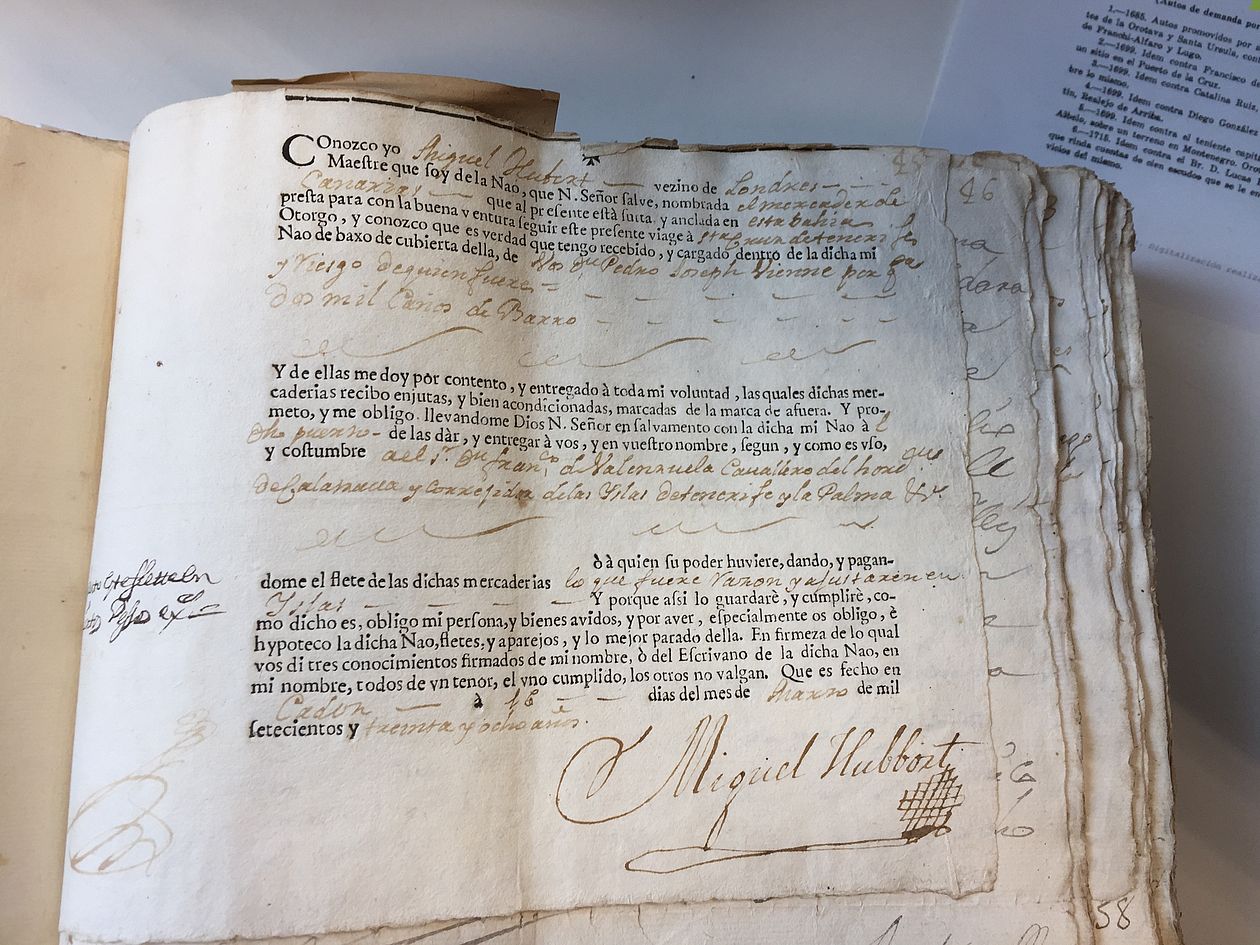 45
46
COnozco yo Miguel Hubert vezino de Londres
Maestre que soy de la Nao, que N. Señor salve, nombrada el mercader de
Canarias que al presente està surta, y anclada en esta bahia
presta para con la buena ventura seguir este presente viage à Sta Cruz de tenerife
Otorgo, y conozco que es verdad que tengo recebido, y cargado dentro de la dicha mi
Nao de baxo de cubierta della, de Vos Dn Pedro Joseph Vienne por qta
y Riesgo de quien fuere
dos mil Caños de Barro
Y de ellas me doy por contento, y entregado à toda mi voluntad, las quales dichas mer-
caderias recibo enjutas, y bien acondicionadas, marcadas de la marca de afuera. Y pro-
meto, y me obligo, llevandome Dios N. Señor en salvamento con la dicha mi Nao à l
dho puerto de las dàr, y entregar à vos, y en vuestro nombre, segun, y como es vso,
y costumbre a el Sr. Dn Franco de Valenzuela Cavallero del horden
de Calatrava y Correjidor de las Yslas de tenerife y la Palma
ò à quien su poder huviere, dando, y pagan-
dome el flete de las dichas mercaderias lo que fuere Razon y ajustaren en
Yslas Y porque assi lo guardarè, y cumplirè, co-
mo dicho es, obligo mi persona, y bienes avidos, y por aver, especialmente os obligo, è
hypoteco la dicha Nao, fletes, y aparejos, y lo mejor parado della. En firmeza de lo qual
vos di tres conocimientos firmados de mi nombre, ò del Escrivano de la dicha Nao, en
mi nombre, todos de vn tenor, el vno cumplido, los otros no valgan. Que es fecho en
Cadiz à 16 dias del mes de Marzo de mil
setecientos y treinta y ocho años.
Miguel Hubbort
58
(Autos de demanda por
1.—1685. Autos promovidos por
tes de la Orotava y Santa Ursula, con
de Franchi-Alfaro y Lugo.
2.—1699. Idem contra Francisco de
un sitio en el Puerto de la Cruz.
3.—1699. Idem contra Catalina Ruiz,
bre lo mismo.
4.—1699. Idem contra Diego González
tín, Realejo de Arriba.
5.—1699. Idem contra el teniente capi
Albelo, sobre un terreno en Montenegro. Oro
6.—1715. Idem contra el Br. D. Lucas
que rinda cuentas de cien escudos que se le en
vinios del mismo.
digitalización realiz